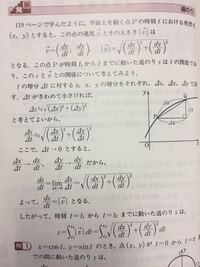 道のり
119ページで学んだように,平面上を動く点Pの時刻tにおける座標を
(x, y)とすると,この点の速度 v⃗ とその大きさ |v⃗| は
v⃗=(dx/dt, dy/dt), |v⃗|=√((dx/dt)²+(dy/dt)²)
となる。この点Pが時刻t₁からtまでに動いた道のりsはtの関数であり,
このsとvとの関係について考えてみよう。
tの増分Δtに対するs, x, yの増分をそれぞれ,Δs, Δx, Δy
Δtがきわめて小さければ,
Δs≒√((Δx)²+(Δy)²)
となるから
Δs/Δt≒√((Δx/Δt)²+(Δy/Δt)²)
ここで,Δt→0とすると,
Δs/Δt→ds/dt, Δx/Δt→dx/dt, Δy/Δt→dy/dt だから,
ds/dt=lim Δs/Δt=√((dx/dt)²+(dy/dt)²)
よって,ds/dt=|v⃗| となる。
したがって,時刻t=t₁からt=t₂までに動いた道のりsは,
s=∫|v⃗|dt=∫√((dx/dt)²+(dy/dt)²)dt
例 x=cost, y=sint のとき,点(x, y)がt=0から